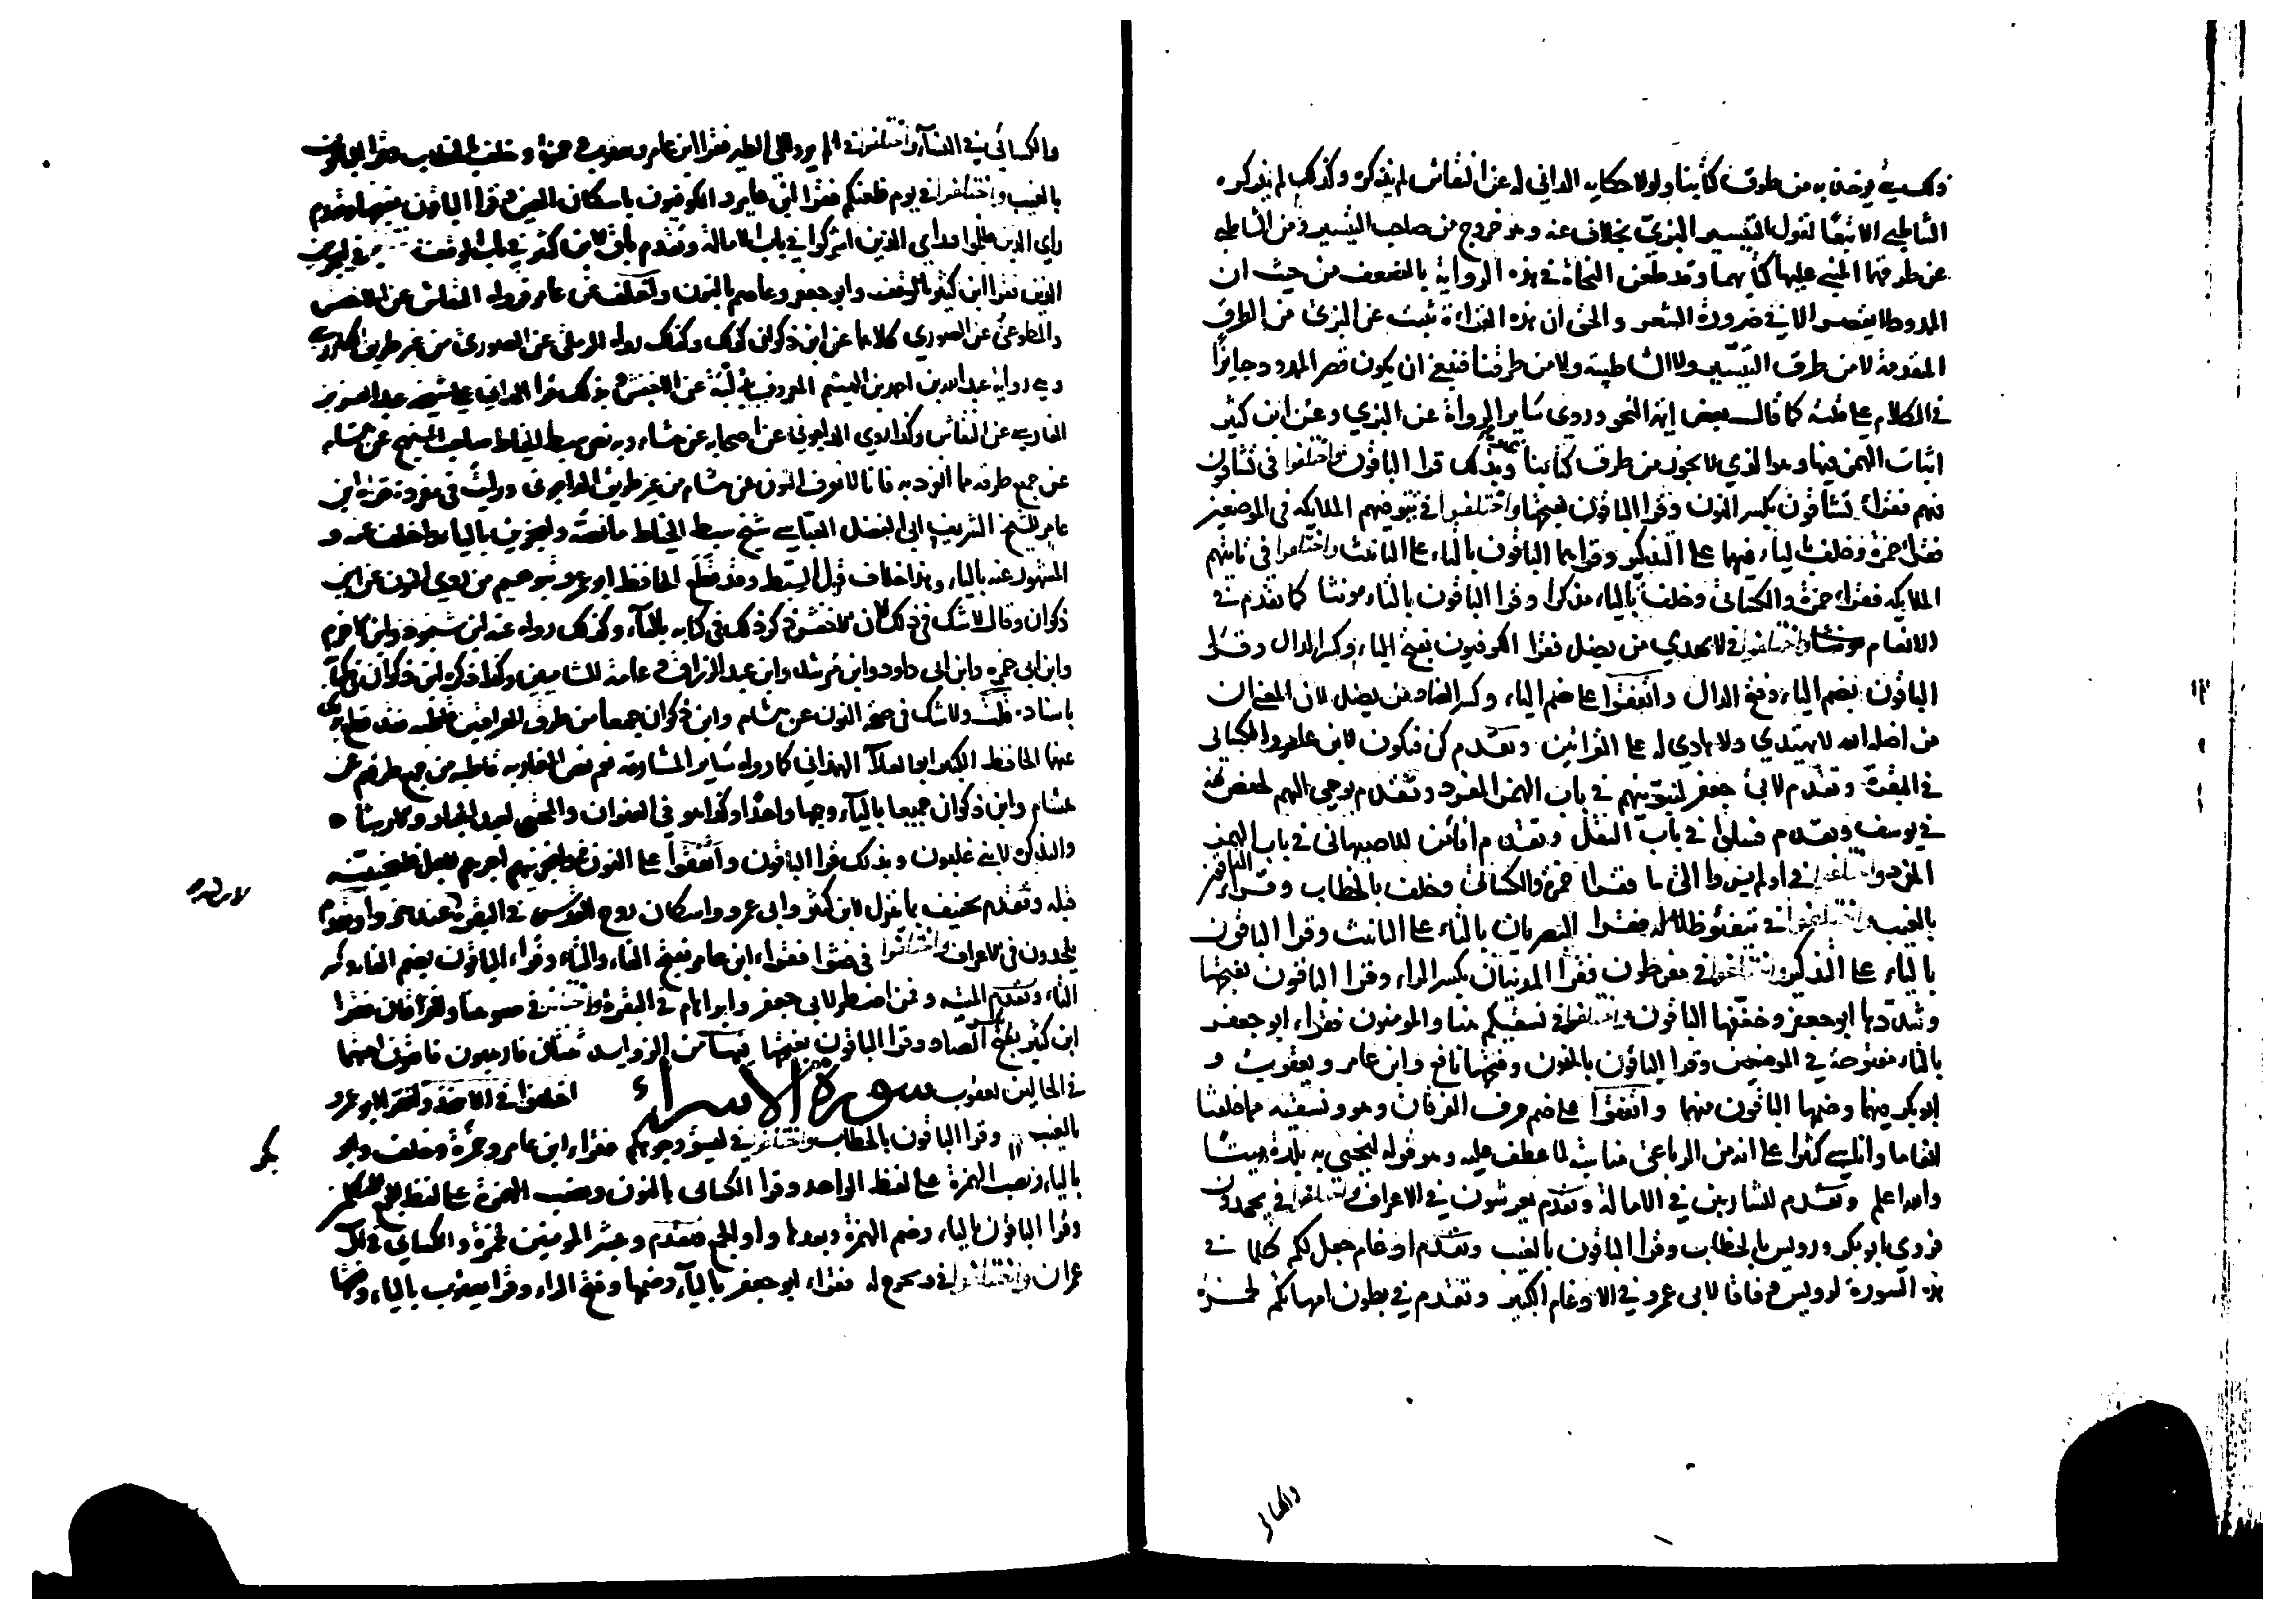 ذلك شيء يوخذ به من طرق كتابنا ولولا حكايه الداني له عن النقاش لم يذكره وكذلك لم يذكره
الشاطبي الا تبعا لقول التيسير البزي بخلاف عنه وهو خروج من صاحب التيسير ومن الشاطبي
عن طرقهما المبني عليها كتابهما وقد طعن النحاة في هذه الرواية بالضعف من حيث ان
الممدود لا يقصر الا في ضرورة الشعر والحق ان هذه القراءة ثبتت عن البزي من الطرق
المقدمة لا من طرق التيسير ولا الشاطبية ولا من طرقنا فينبغي ان يكون قصر الممدود جايزا
في الكلام على قلته كما قال بعض ايمة النحو وروى ساير الرواة عن البزي وعن ابن كثير
اثبات الهمز فيها وهو الذي لا يجوز من طرق كتابنا غيره وبذلك قرا الباقون واختلفوا في تشاقون
فيهم فقرا نافع بكسر النون وقرا الباقون بفتحها واختلفوا في تتوفيهم الملايكه في الموضعين
فقرا حمزة وخلف بالياء فيهما على التذكير وقراهما الباقون بالتاء على التانيث واختلفوا في تاتيهم
الملايكه فقراء حمزة والكسائي وخلف بالياء مذكرا وقرا الباقون بالتاء مونثا كما تقدم في
الانعام واختلفوا في لا يهدي من يضل فقرا الكوفيون بفتح الياء وكسر الدال وقرا
الباقون بضم الياء وفتح الدال واتفقوا على ضم الياء وكسر الضاد من يضل لان المعنى ان
من اضله الله لا يهتدي ولا هادي له على القراتين وتقدم كن فيكون لابن عامر والكسائي
في البقرة وتقدم لابي جعفر لنبوئنهم في باب الهمز المفرد وتقدم يوحي اليهم لحفص
في يوسف وتقدم فسلوا في باب النقل وتقدم افامن للاصبهاني في باب الهمز
المفرد واختلفوا في اولم يروا الى ما فقرا حمزة والكسائي وخلف بالخطاب وقراء الباقون
بالغيب واختلفوا في تتفيؤ ظلاله فقرا البصريان بالتاء على التانيث وقرا الباقون
بالياء على التذكير واختلفوا في مفرطون فقرا المدنيان بكسر الراء وقرا الباقون بفتحها
وشددها ابو جعفر وخففها الباقون واختلفوا في نسقيكم هنا والمومنون فقراء ابو جعفر
بالتاء مفتوحة في الموضعين وقرا الباقون بالنون وفتحها نافع وابن عامر ويعقوب و
ابو بكر فيهما وضمها الباقون منهما واتفقوا على ضم حرف الفرقان وهو ونسقيه مما خلقنا
انعاما واناسي كثيرا على انه من الرباعي مناسبة لما عطف عليه وهو قوله لنحيي به بلدة ميتا
والله اعلم وتقدم للشاربين في الامالة وتقدم يعرشون في الاعراف واختلفوا في يجحدون
فروى ابو بكر ورويس بالخطاب وقرا الباقون بالغيب وتقدم ادغام جعل لكم كلما في
هذه السورة لرويس وفاقا لابي عمرو في الادغام الكبير وتقدم في بطون امهاتكم لحمزة
والكسائي
والكسائي في النساء واختلفوا في الم يروا الى الطير فقرا ابن عامر ويعقوب وحمزة وخلف بالخطاب وقرا الباقون
بالغيب واختلفوا في يوم ظعنكم فقرا ابن عامر والكوفيون باسكان العين وقرا الباقون بفتحها وتقدم
راي الذين ظلموا وراي الذين اشركوا في باب الامالة وتقدم باق لابن كثير في باب الوقف
الذين فقرا ابن كثير وابو جعفر وعاصم بالنون واختلف عن ابن عامر فرواه النقاش عن الاخفش
والمطوعي عن الصوري كلاهما عن ابن ذكوان كذلك وكذلك رواه الرملي عن الصوري من غير طريق الكارزيني
وهي رواية عبد الله بن احمد بن الهيثم المعروف بدلبة عن الاخفش وبذلك قرا الداني على شيخه عبد العزيز
الفارسي عن النقاش وكذا روى الداجوني عن اصحابه عن هشام وبه نص سبط الخياط صاحب المبهج عن هشام
عن جميع طرقه مما انفرد به فانا لا نعرف النون عن هشام من غير طريق الداجوني ورايت في مفردة قراءة ابن
عامر للشيخ الشريف ابي الفضل العباسي شيخ سبط الخياط ما نصه وليجزين بالياء واختلف عنه و
المشهور عنه بالياء وهذا خلاف قول السبط وقد قطع الحافظ ابو عمرو بتوهيم من روى النون عن ابن
ذكوان وقال لا شك في ذلك لان الاخفش ذكر ذلك في كتابه بالياء وكذلك رواه عنه ابن شنبوذ وابن الاخرم
وابن ابي حمزه وابن ابي داود وابن مرشد وابن عبد الرزاق وعامة الشاميين وكذا ذكره ابن ذكوان في كتابه
باسناده قلت ولا شك في صحة النون عن هشام وابن ذكوان جميعا من طرق العراقيين قاطبه فقد قطع بذلك
عنهما الحافظ الكبير ابو العلاء الهمداني كما رواه ساير المشارقة نعم نص المغاربه قاطبه من جميع طرقهم عن
هشام وابن ذكوان جميعا بالياء وجها واحدا وكذا هو في العنوان والمجتبى لعبد الجبار والارشاد
والتذكرة لابن غلبون وبذلك قرا الباقون واتفقوا على النون في ولنجزينهم اجرهم لاجل فلنحيينه
قبله وتقدم تخفيف بما ينزل لابن كثير وابي عمرو واسكان روح القدس في البقرة
يلحدون في الاعراف واختلفوا في فتنوا فقراء ابن عامر بفتح الفاء والتاء وقراء الباقون بضم الفاء وكسر
التاء وتقدم الميتة وفمن اضطر لابي جعفر وابراهام في البقرة واختلفوا في ضيق هنا والنمل فقرا
ابن كثير بكسر الضاد وقرا الباقون بفتحها فيها من الزوايد ثنتان فارهبون فاتقون اثبتهما
في الحالين يعقوب سورة الاسراء اختلفوا في الا تتخذوا فقرا ابو عمرو
بالغيب وقرا الباقون بالخطاب واختلفوا في ليسوؤ وجوهكم فقراء ابن عامر وحمزة وخلف وابو
بكر
بالياء ونصب الهمزة على لفظ الواحد وقرا الكسائي بالنون ونصب الهمزة على لفظ الجمع للمتكلمين
وقرا الباقون بالياء وضم الهمزة وبعدها واو الجمع وتقدم ويبشر المومنين لحمزة والكسائي في ال
عمران واختلفوا في ونخرج له فقراء ابو جعفر بالياء وضمها وفتح الراء وقرا يعقوب بالياء وفتحها